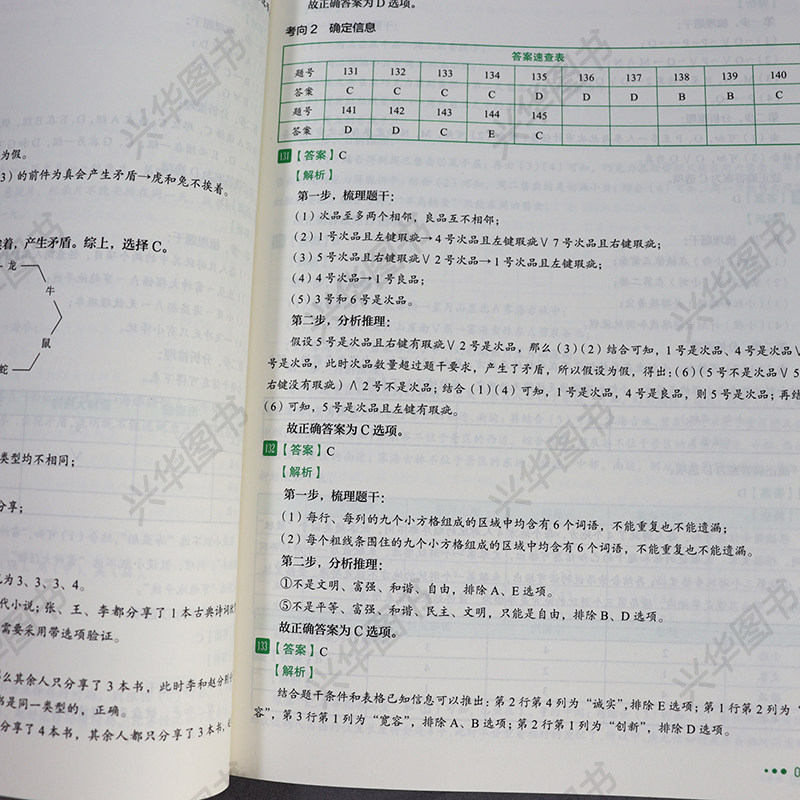 为假。
3）的前件为真会产生矛盾→虎和兔不挨着。
挨着，产生矛盾。综上，选择C。
龙
牛
鼠
蛇
类型均不相同；
分享；
为3、3、3、4。
代小说；张、王、李都分享了1本古典诗词
需要采用带选项验证。
么其余人只分享了3本书，此时李和赵分
书是同一类型的，正确。
分享了4本书，其余人都只分享了3本书，
故正确答案为D选项。
考向2 确定信息
答案速查表
题号 131 132 133 134 135 136 137 138 139 140
答案 C C C C D D D B B C
题号 141 142 143 144 145
答案 D D C E C
131【答案】C
【解析】
第一步，梳理题干：
（1）次品至多两个相邻，良品互不相邻；
（2）1号次品且左键瑕疵→4号次品且左键瑕疵∨7号次品且右键瑕疵；
（3）5号次品且右键瑕疵∨2号次品→1号次品且左键瑕疵；
（4）4号次品→1号良品；
（5）3号和6号是次品。
第二步，分析推理：
假设5号是次品且右键有瑕疵∨2号是次品，那么（3）（2）结合可知，1号是次品、4号是次品∨
号是次品，此时次品数量超过题干要求，产生了矛盾，所以假设为假，得出：（6）（5号不是次品∨5
右键没有瑕疵）∧2号不是次品；结合（1）（4）可知，1号是次品，4号是良品，则5号是次品；再结
（6）可知，5号是次品且左键有瑕疵。
故正确答案为C选项。
132【答案】C
【解析】
第一步，梳理题干：
（1）每行、每列的九个小方格组成的区域中均含有6个词语，不能重复也不能遗漏；
（2）每个粗线条围住的九个小方格组成的区域中均含有6个词语，不能重复也不能遗漏。
第二步，分析推理：
①不是文明、富强、和谐、自由，排除A、E选项。
⑤不是平等、富强、和谐、民主、文明，只能是自由，排除B、D选项。
故正确答案为C选项。
133【答案】C
【解析】
结合题干条件和表格已知信息可以推出：第2行第4列为“诚实”，排除E选项；第1行第2列为“
容”，第3行第1列为“宽容”，排除A、B选项；第2行第1列为“创新”，排除D选项。
兴华图书
兴华图书
兴华图书
兴华图书
兴华图书
兴华图书
兴华图书
兴华图书
兴华图书